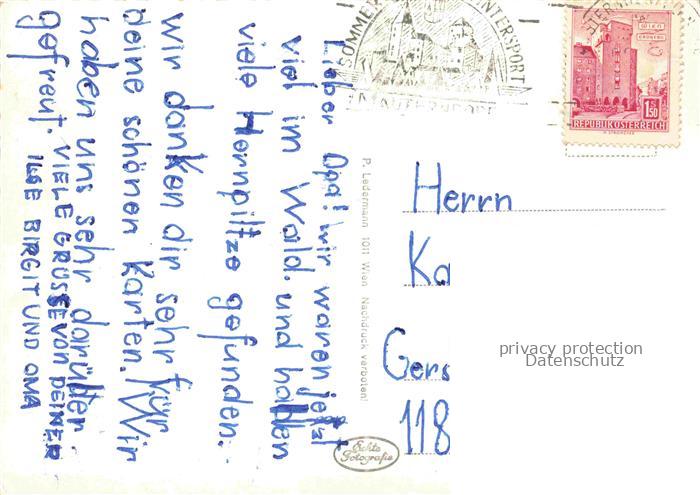 Lieber Opa! Wir waren jetzt
viel im Wald. und haben
viele Herrnpiltze gefunden.
Wir danken dir sehr für
deine schönen Karten. Wir
haben uns sehr darüber
gefreut. VIELE GRÜSSE VON DEINER
ILSE BIRGIT UND OMA
P. Ledermann 1011 Wien Nachdruck verboten!
Echte
Fotografie
SOMMER
WINTERSPORT
MAUTERNDORF
WIEN
1S50
REPUBLIK ÖSTERREICH
Herrn
Ka
Gers
118
privacy protection
Datenschutz